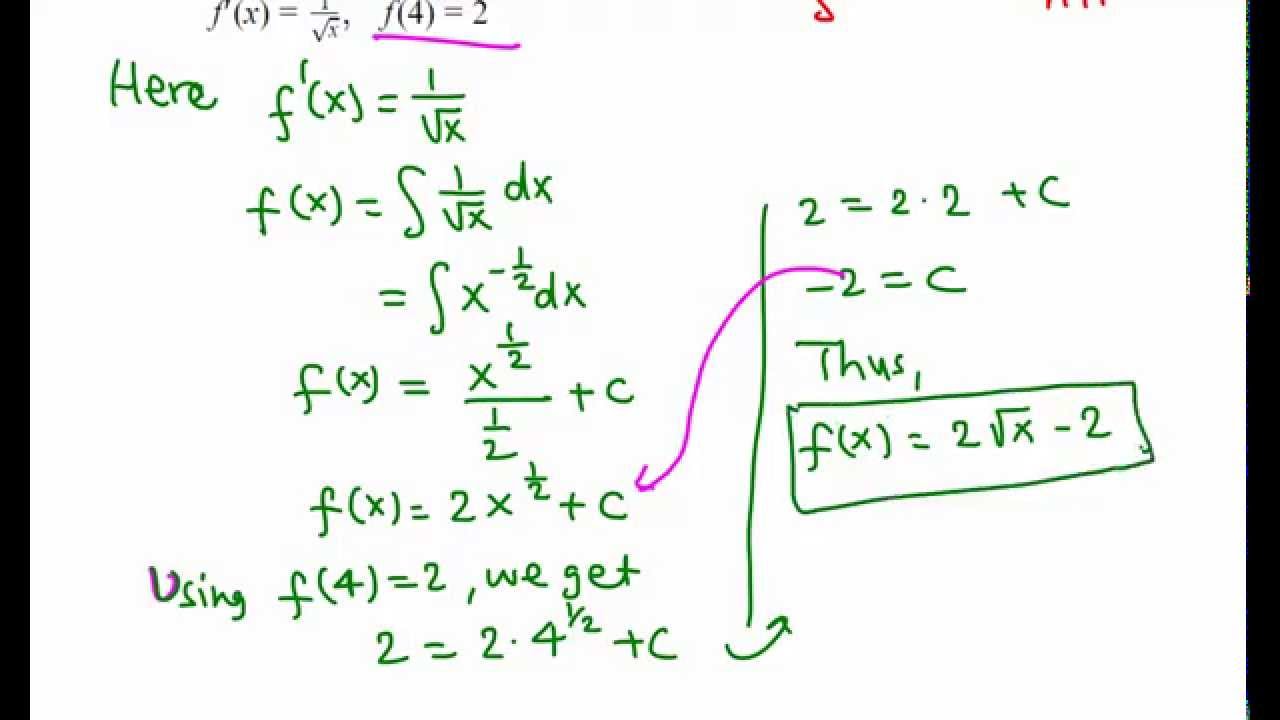 f'(x) = 1/√x, f(4) = 2
Here f'(x) = 1/√x
f(x) = ∫ 1/√x dx
= ∫ x^(-1/2) dx
f(x) = x^(1/2)/(1/2) + C
f(x) = 2x^(1/2) + C
Using f(4) = 2, we get
2 = 2 · 4^(1/2) + C
2 = 2 · 2 + C
-2 = C
Thus,
f(x) = 2√x - 2